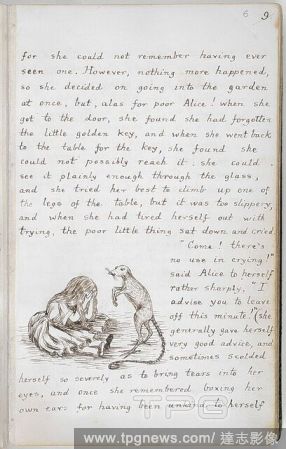 6 9
for she could not remember having ever
seen one. However, nothing more happened,
so she decided on going into the garden
at once, but, alas for poor Alice! when she
got to the door, she found she had forgotten
the little golden key, and when she went back
to the table for the key, she found she
could not possibly reach it: she could
see it plainly enough through the glass,
and she tried her best to climb up one of
the legs of the table, but it was too slippery,
and when she had tired herself out with
trying, the poor little thing sat down and cried.
"Come! there's
no use in crying!"
said Alice to herself
rather sharply, "I
advise you to leave
off this minute!" (she
generally gave herself
very good advice, and
sometimes scolded
herself so severely as to bring tears into her
eyes, and once she remembered boxing her
own ears for having been unkind to herself
TPG
www.tpgnews.com / 達志影像